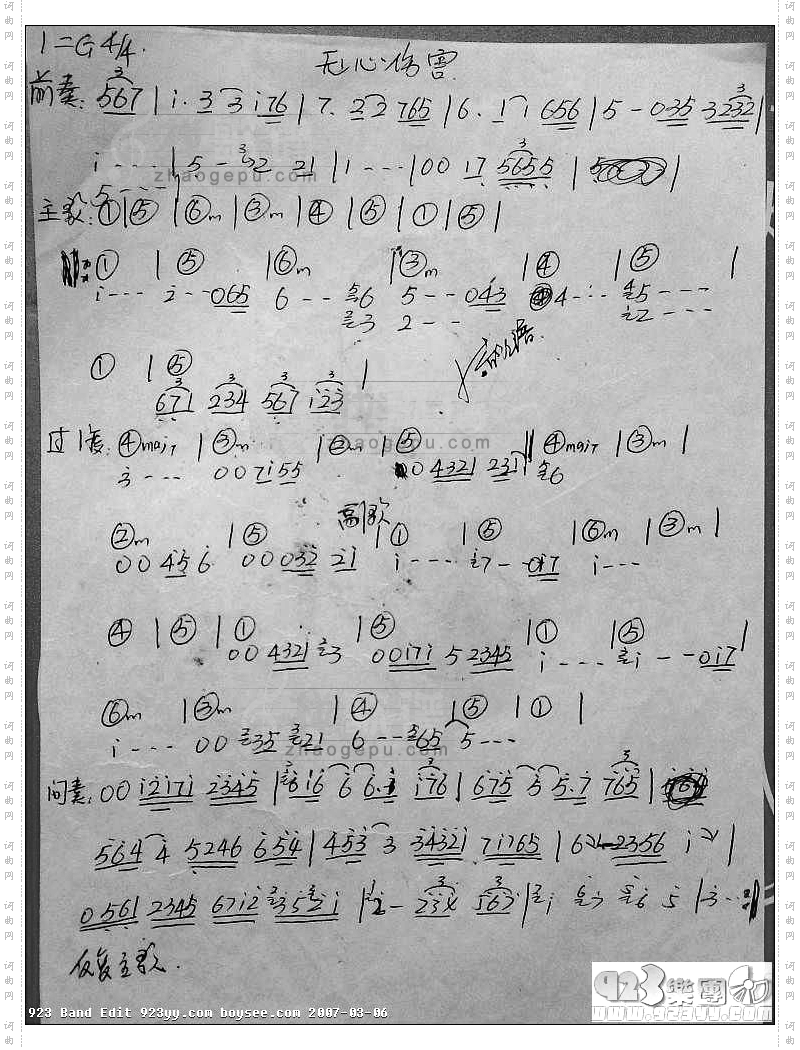 1=G 4/4.
无心伤害
前奏: 567 | i. 3 3 i76 | 7. 2 2 765 | 6. 1 i 656 | 5 - 035 3232 |
i - - - | 5 - 32 21 | 1 - - - | 00 17 5655 |
zhaogepu.com
主歌: ① | ⑤ | ⑥m | ③m | ④ | ⑤ | ① | ⑤ |
① | ⑤ | ⑥m | ③m | ④ | ⑤ |
i - - - 2 - - 065 6 - - 6 5 - - 043 4 - - 5 - - -
3 2 - - 2 - - -
① | ⑤ |
671 234 567 i23
过门奏: ④maj7 | ③m | ②m | ⑤ || ④maj7 | ③m |
zhaogepu.com
3 - - - 00 7i55 00 4321 231 6
副歌
②m | ⑤ | ① | ⑤ | ⑥m | ③m |
00 45 6 00 032 21 i - - - 7 - - 017 i - - -
④ | ⑤ | ① | ⑤ | ① | ⑤ |
00 4321 3 00 i7i 5 2345 i - - - i - - 0i7
⑥m | ③m | ④ | ⑤ | ① |
i - - - 00 35 21 6 - - 65 5 - - -
zhaogepu.com
间奏: 00 i2i7i 2345 | 6i6 6 6. i i76 | 675 5 5.7 765 |
564 4 5246 654 | 453 3 34321 7i765 | 6 2356 i |
0561 2345 67i2 352i | 2 - 234 567 | i 7 6 5 | 3 - -
反复主歌.
923樂團
www.923yy.com
923 Band Edit 923yy.com boysee.com 2007-03-06
词曲网